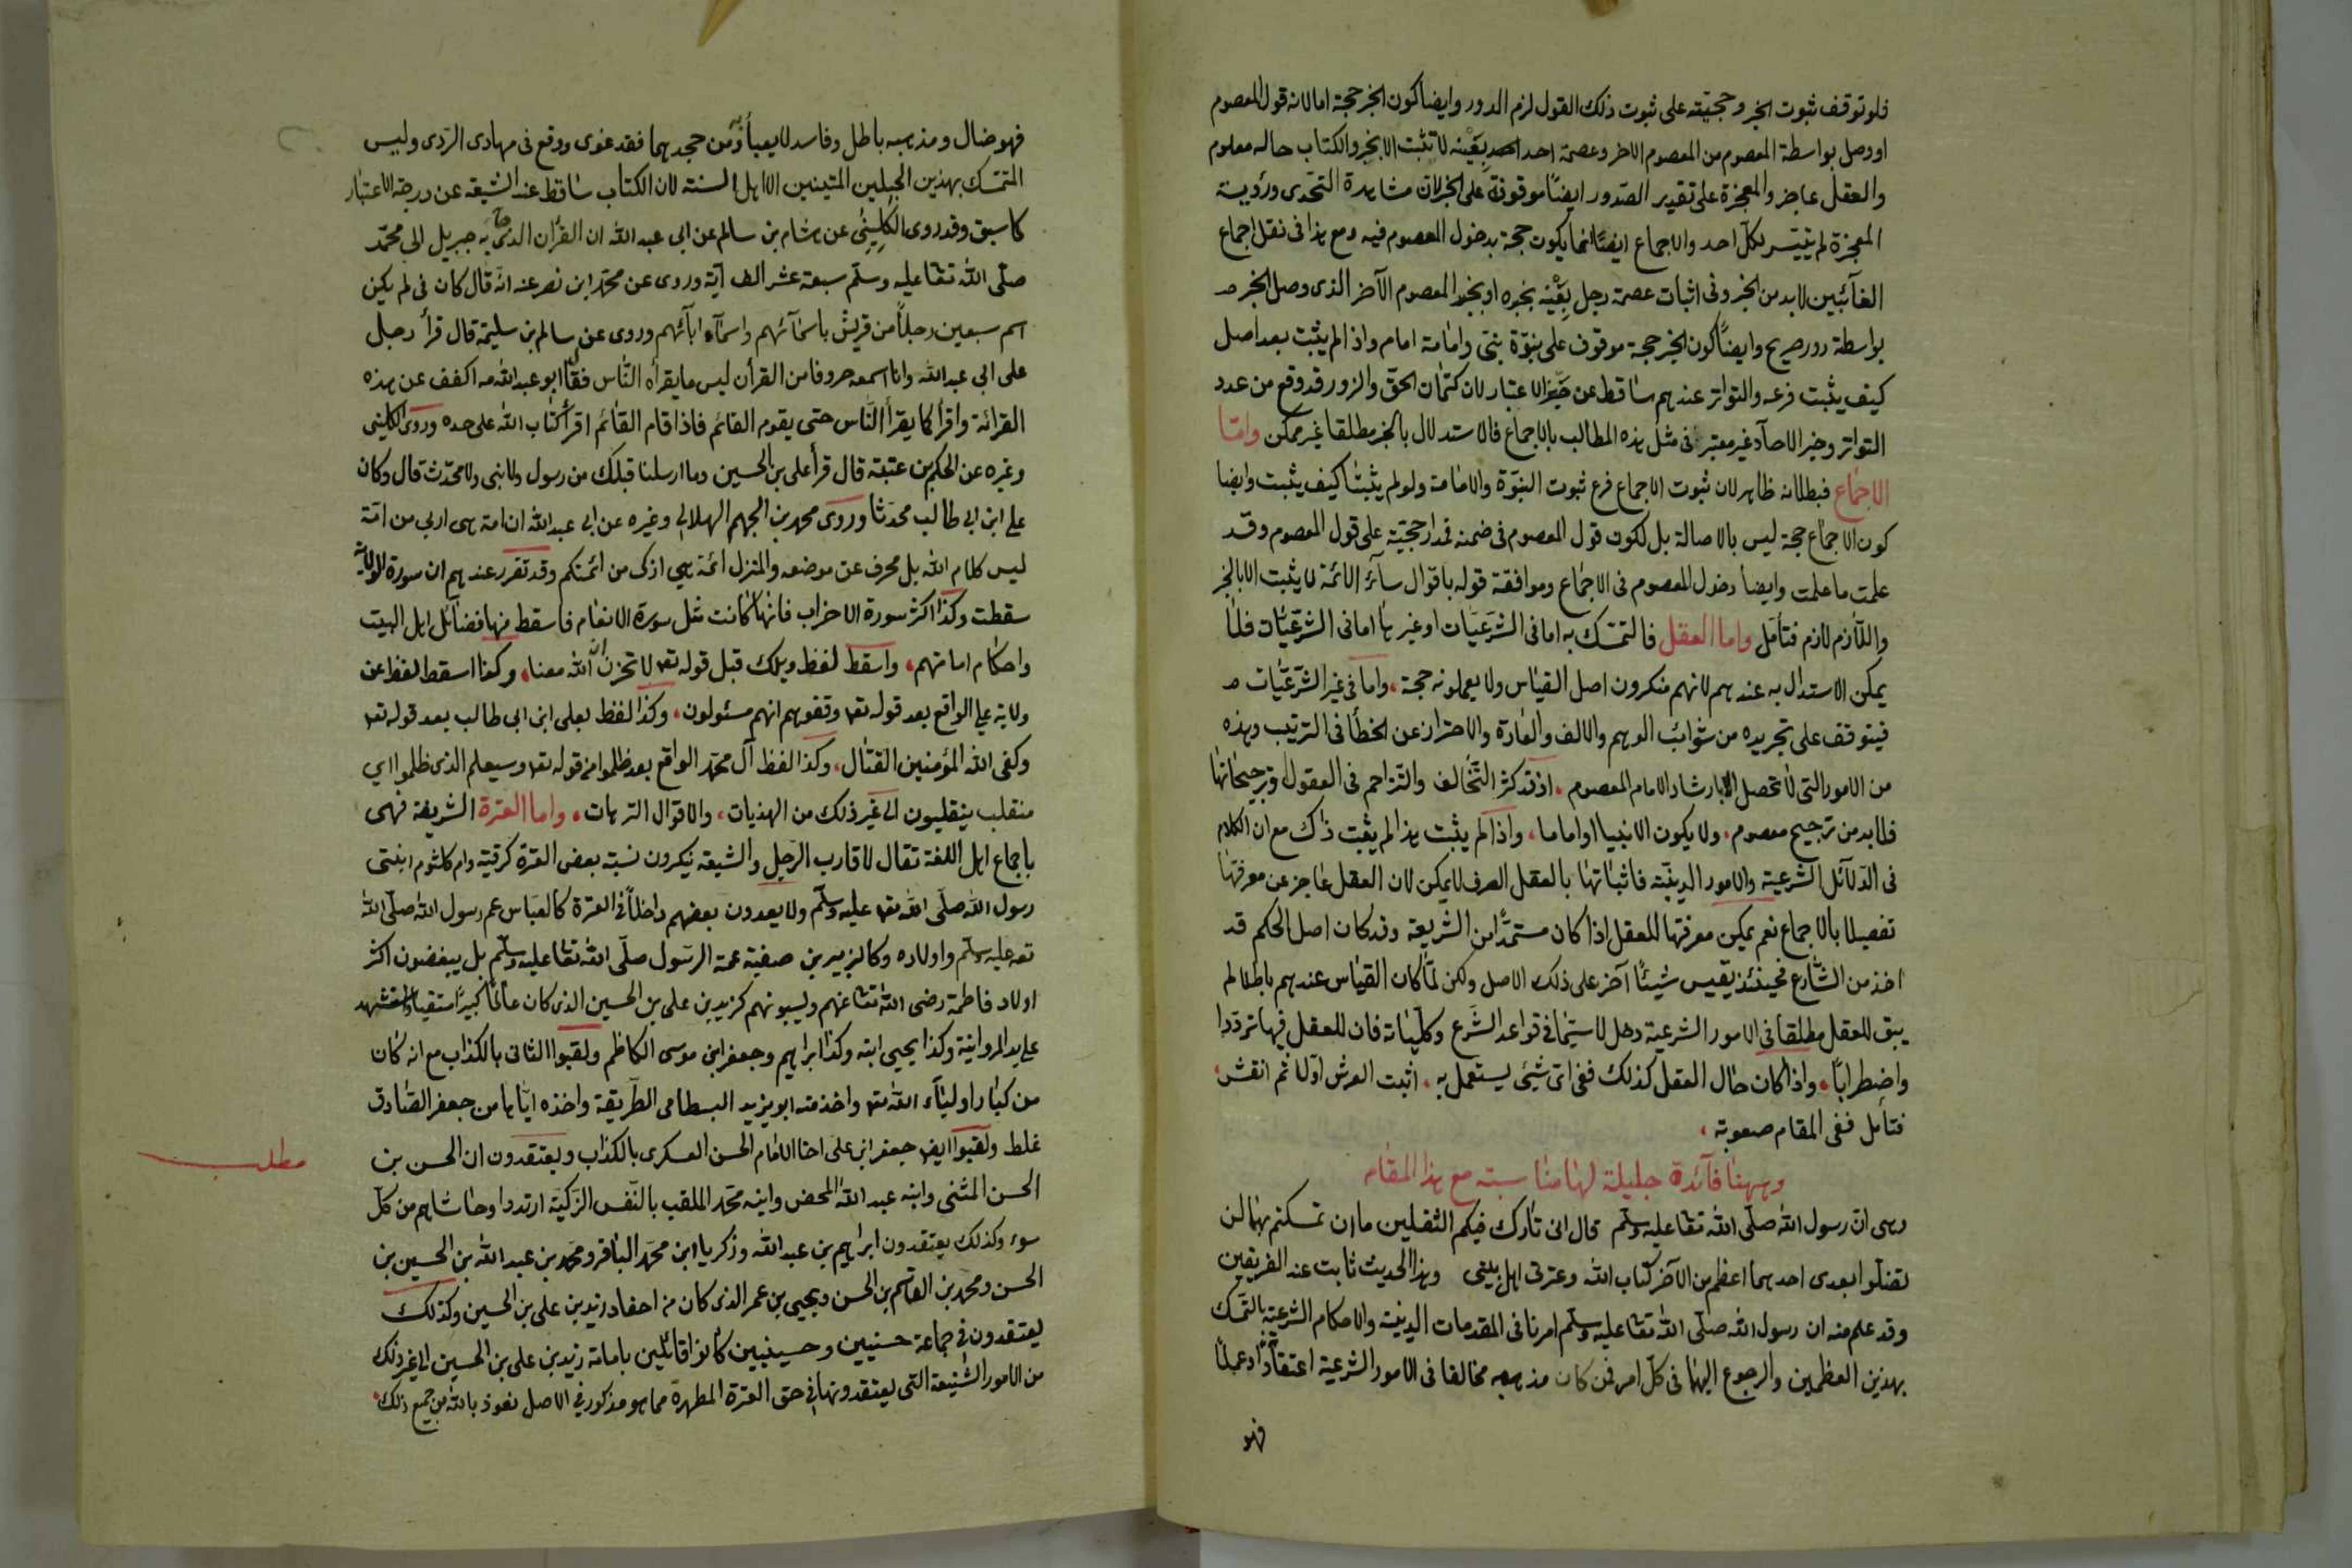 فلو توقف ثبوت الخبر وحجيته على ثبوت ذلك القول لزم الدور وايضا كون الخبر حجة اما لانه قول المعصوم
او وصل بواسطة المعصوم من المعصوم الاخر وعصمة احد بعينه لا تثبت الا بخبر والكتاب حاله معلوم
والعقل عاجز والمعجزة على تقدير الصدور ايضًا موقوفة على الخبر لان مشاهدة التحدى ورؤية
المعجزة لم يتيسر لكل احد والاجماع ايضًا انما يكون حجة بدخول المعصوم فيه ومع هذا فى نقل اجماع
الغائبين لا بد من الخبر وفى اثبات عصمة رجل بعينه بخبره او بخبر المعصوم الآخر الذى وصل الخبر
بواسطة دور صريح وايضًا كون الخبر حجة موقوف على نبوّة نبى وامامة امام واذا لم يثبت بعد اصل
كيف يثبت فرعه والتواتر عندهم ساقط عن حيز الاعتبار لان كتمان الحق والزور قد وقع من عدد
التواتر وخبر الاحاد غير معتبر فى مثل هذه المطالب بالاجماع فالاستدلال بالخبر مطلقا غير ممكن واما
الاجماع فبطلانه ظاهر لان ثبوت الاجماع فرع ثبوت النبوّة والامامة ولو لم يثبتا كيف يثبت وايضا
كون الاجماع حجة ليس بالاصالة بل لكون قول المعصوم فى ضمنه فمدار حجيته على قول المعصوم وقد
علمت ما علمت وايضا دخول المعصوم فى الاجماع وموافقة قوله باقوال سائر الائمة لا يثبت الا بالخبر
واللازم لازم فتأمل واما العقل فالتمسك به اما فى الشرعيات او غيرها اما فى الشرعيات فلا
يمكن الاستدلال به عندهم لانهم منكرون اصل القياس ولا يعملونه حجة، واما فى غير الشرعيات
فيتوقف على تجريده من شوائب الوهم والالف والعادة والاحتراز عن الخطأ فى الترتيب وهذه
من الامور التى لا تحصل الا بارشاد الامام المعصوم، اذ قد كثر التخالف والتزاحم فى العقول وترجيحاتها
فلا بد من ترجيح معصوم، ولا يكون الا نبيا او اماما، واذا لم يثبت هذا لم يثبت ذاك مع ان الكلام
فى الدلائل الشرعية والامور الدينية فاثباتها بالعقل الصرف لا يمكن لان العقل عاجز عن معرفتها
تفصيلا بالاجماع نعم يمكن معرفتها للعقل اذا كان مستمدًا من الشريعة وقد كان اصل الحكم قد
اخذ من الشارع فحينئذ يقيس شيئًا آخر على ذلك الاصل ولكن لما كان القياس عندهم باطلا لم
يبق للعقل مطلقا فى الامور الشرعية دخل لا سيما فى قواعد الشرع وكلياته فان للعقل فيها ترددا
واضطرابًا، واذا كان حال العقل كذلك ففى اى شئ يستعمل به، اثبت العرش اولا ثم انقش،
فتأمل ففى المقام صعوبة،
وههنا فائدة جليلة لها مناسبة مع هذا المقام
وهى ان رسول الله صلى الله تعا عليه وسلم قال انى تارك فيكم الثقلين ما ان تمسكتم بهما لن
تضلوا بعدى احدهما اعظم من الآخر كتاب الله وعترتى اهل بيتى وهذا الحديث ثابت عند الفريقين
وقد علم منه ان رسول الله صلى الله تعا عليه وسلم امرنا فى المقدمات الدينية والاحكام الشرعية بالتمسك
بهذين العظيمين والرجوع اليهما فى كل امر فمن كان مذهبه مخالفا فى الامور الشرعية اعتقادًا او عملًا
فهو
فهو ضال ومذهبه باطل وفاسد لا يعبأ به ومن جحد بهما فقد غوى ووقع فى مهادى الردى وليس
المتمسك بهذين الحبلين المتينين الا اهل السنة لان الكتاب ساقط عند الشيعة عن درجة الاعتبار
كما سبق وقد روى الكلينى عن هشام بن سالم عن ابى عبد الله ان القرآن الذى جاء به جبريل الى محمد
صلى الله تعا عليه وسلم سبعة عشر الف آية وروى عن محمد ابن نصر عنه انه قال كان فى لم يكن
اسم سبعين رجلًا من قريش باسمائهم واسماء ابآئهم وروى عن سالم بن سليمة قال قرأ رجل
على ابى عبد الله وانا اسمعه حروفا من القرأن ليس ما يقرأه الناس فقال ابو عبد الله مه اكفف عن هذه
القرائة واقرأ كما يقرأ الناس حتى يقوم القائم فاذا قام القائم اقرأ كتاب الله على حده وروى الكلينى
وغيره عن الحكم بن عتبة قال قرأ على بن الحسين وما ارسلنا قبلك من رسول ولا نبى ولا محدث قال وكان
على ابن ابى طالب محدثا وروى محمد بن الجهم الهلالى وغيره عن ابى عبد الله ان امة هى اربى من امة
ليس كلام الله بل محرف عن موضعه والمنزل ائمة هى ازكى من ائمتكم وقد تقرر عندهم ان سورة الولاية
سقطت وكذا اكثر سورة الاحزاب فانها كانت مثل سورة الانعام فاسقط منها فضائل اهل البيت
واحكام امامتهم، واسقط لفظ ويلك قبل قوله تعا لا تحزن ان الله معنا، وكذا اسقط لفظ عن
ولاية على الواقع بعد قوله تعا وقفوهم انهم مسئولون، وكذا لفظ بعلى ابن ابى طالب بعد قوله تعا
وكفى الله المؤمنين القتال، وكذا لفظ آل محمد الواقع بعد ظلموا من قوله تعا وسيعلم الذى ظلموا اى
منقلب ينقلبون الى غير ذلك من الهذيات، والاقوال الترهات، واما العترة الشريفة فهى
باجماع اهل اللغة تقال لاقارب الرجل والشيعة ينكرون نسبة بعض العترة كرقية وام كلثوم ابنتى
رسول الله صلى الله تعا عليه وسلم ولا يعدون بعضهم داخلًا فى العترة كالعباس عم رسول الله صلى الله
تعه عليه وسلم واولاده وكالزبير بن صفية عمة الرسول صلى الله تعا عليه وسلم بل يبغضون اكثر
اولاد فاطمة رضى الله تعا عنهم ويسبونهم كزيد بن على بن الحسين الذى كان عالمًا كبيرًا متقيا واستشهد
على يد المروانية وكذا يحيى ابنه وكذا ابراهيم وجعفر ابن موسى الكاظم ولقبوا الثانى بالكذاب مع انه كان
من كبار اولياء الله تعا واخذ منه ابو يزيد البسطامى الطريقة واخذه اياها من جعفر الصادق
غلط ولقبوا ايضا جعفر ابن على اخا الامام الحسن العسكرى بالكذاب ويعتقدون ان الحسن بن
الحسن المثنى وابنه عبد الله المحض وابنه محمد الملقب بالنفس الزكية ارتدوا وحاشاهم من كل
سوء وكذلك يعتقدون ابراهيم بن عبد الله وزكريا ابن محمد الباقر ومحمد بن عبد الله بن الحسين بن
الحسن ومحمد بن القاسم بن الحسن ويحيى بن عمر الذى كان من احفاد زيد بن على بن الحسين وكذلك
يعتقدون فى جماعة حسنيين وحسينيين كانوا قائلين بامامة زيد بن على بن الحسين الى غير ذلك
من الامور الشنيعة التى يعتقدونها فى حق العترة المطهرة مما هو مذكور فى الاصل نعوذ بالله من جميع ذلك،
مطلب